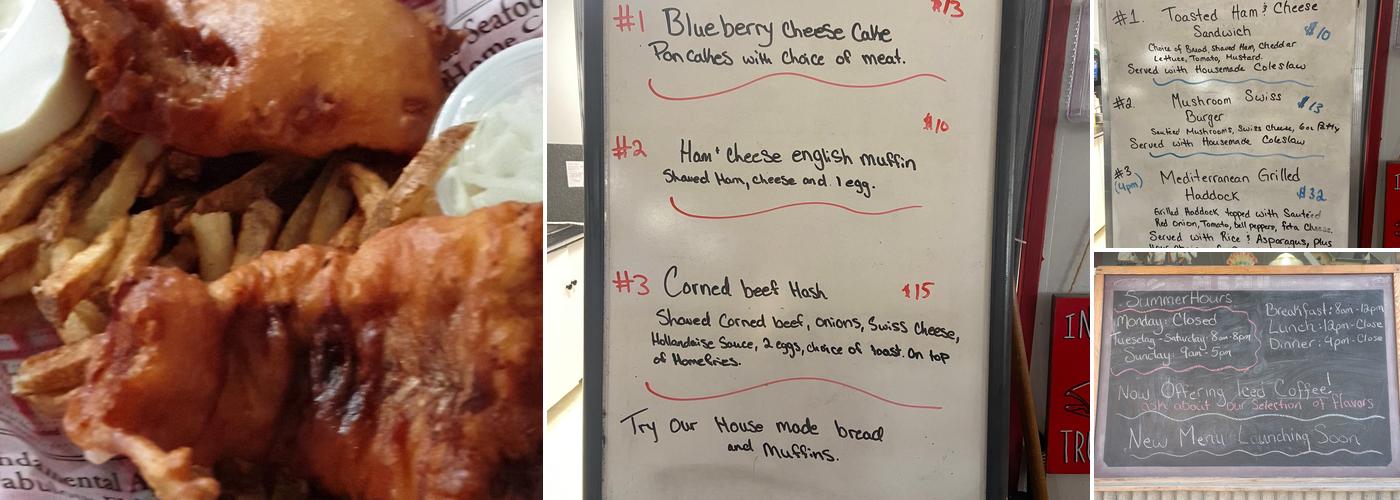 Seafoo
Home C
$13
#1 Blueberry Cheese Cake
Pancakes with choice of meat.
$10
#2 Ham + Cheese english muffin
Shaved Ham, cheese and 1 egg.
#3 Corned beef Hash $15
Shaved Corned beef, onions, Swiss Cheese,
Hollandaise Sauce, 2 eggs, choice of toast. On top
of Homefries.
Try Our House made bread
and Muffins.
IN
TR
#1. Toasted Ham & Cheese
Sandwich $10
Choice of Bread, Shaved Ham, Cheddar
Lettuce, Tomato, Mustard.
Served with Housemade Coleslaw
#2. Mushroom Swiss $13
Burger
Sautéed Mushrooms, Swiss Cheese, 6oz Patty
Served with Housemade Coleslaw
#3 Mediterranean Grilled
(4pm) Haddock $32
Grilled Haddock topped with Sautéed
Red onion, Tomato, bell peppers, feta Cheese.
Served with Rice & Asparagus, plus
Summer Hours
Monday: Closed
Tuesday - Saturday: 8am-8pm
Sunday: 9am-5pm
Breakfast: 8am-12pm
Lunch: 12pm-Close
Dinner: 4pm-Close
Now Offering Iced Coffee!
ask about our selection of flavors
New Menu Launching Soon